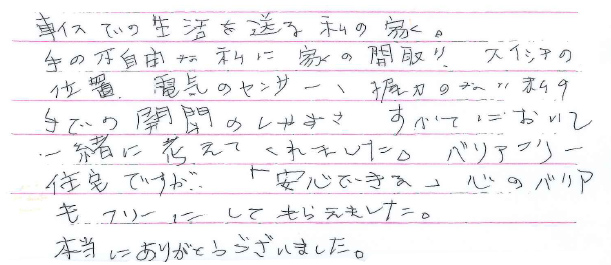 車イスでの生活を送る私の家。
手の不自由な私に家の間取り、スイッチの
位置、電気のセンサー、握力のない私の
手での開閉のしやすさ すべてにおいて
一緒に考えてくれました。バリアフリー
住宅ですが、「安心できる」心のバリア
もフリーにしてもらえました。
本当にありがとうございました。